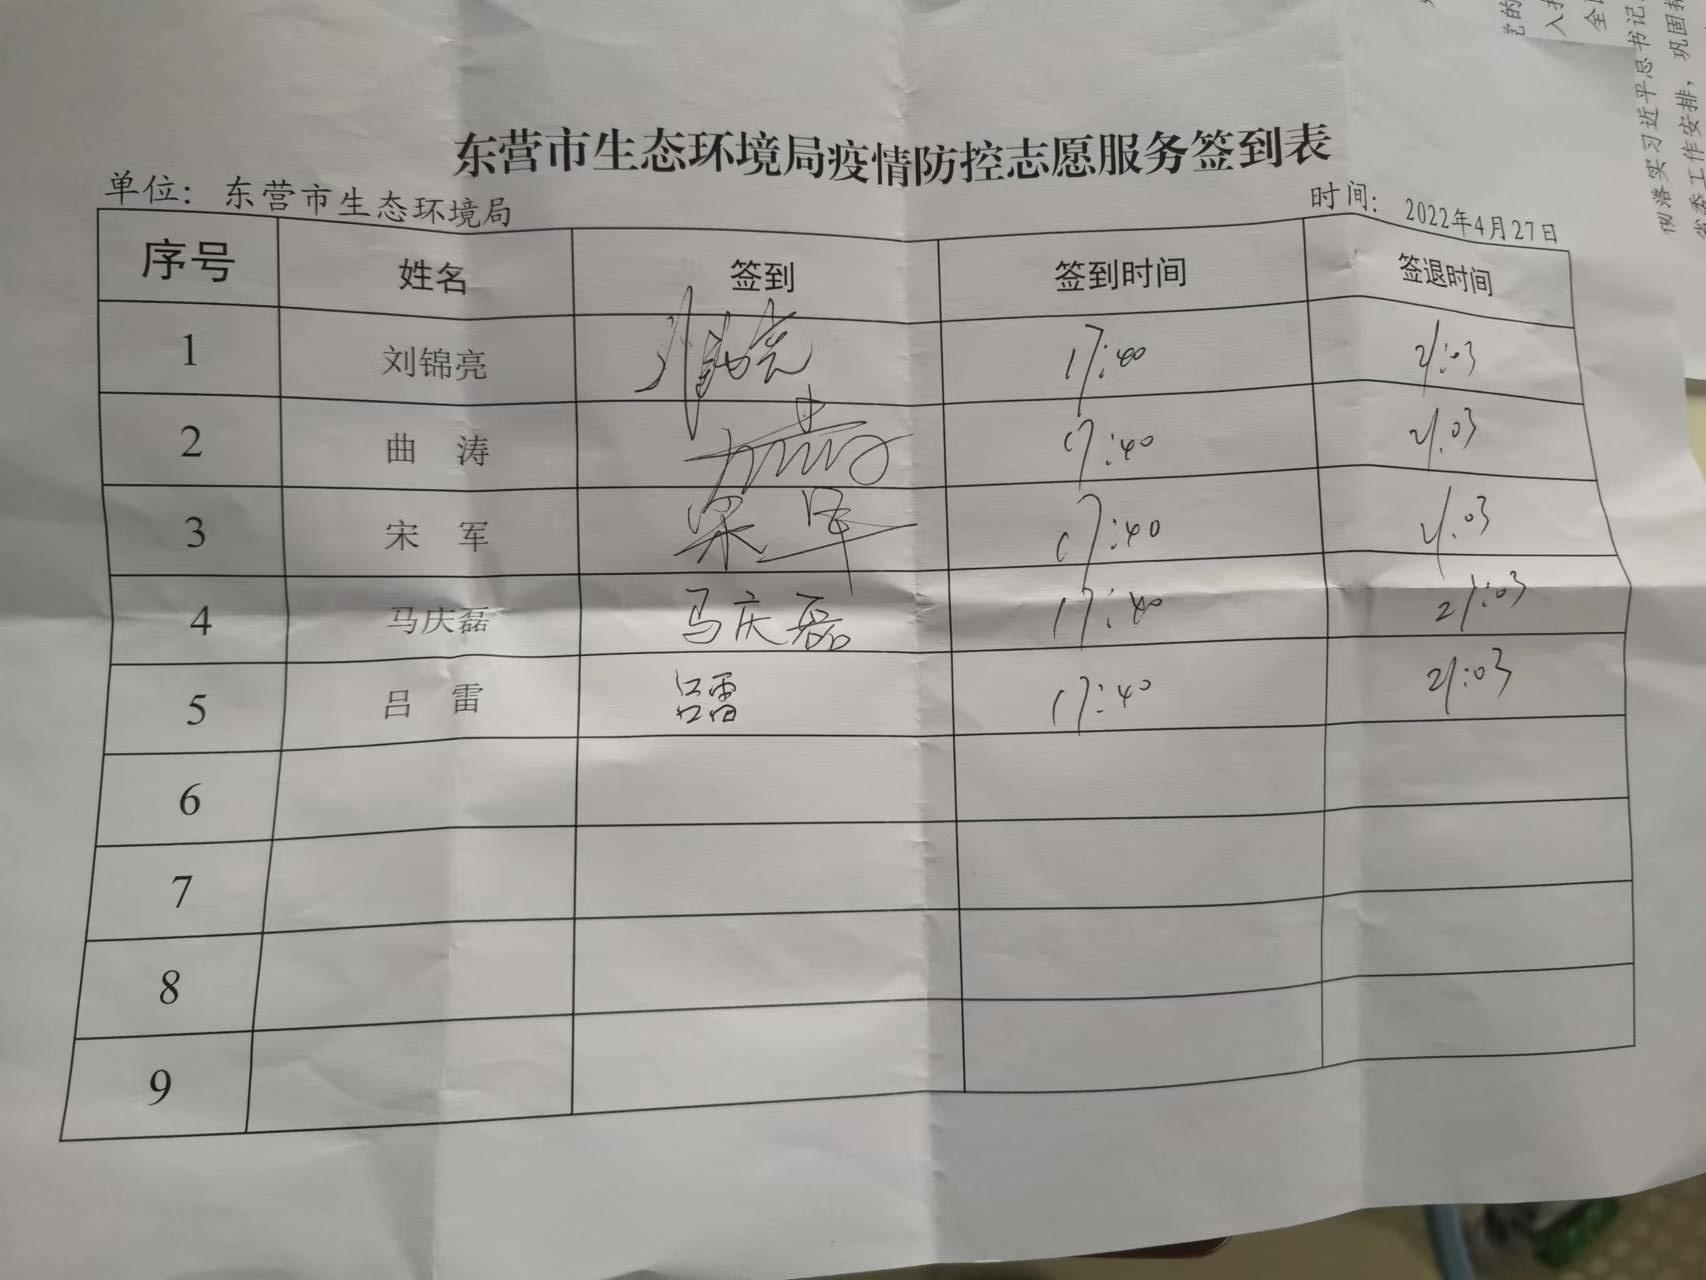 东营市生态环境局疫情防控志愿服务签到表
单位：东营市生态环境局 时间：2022年4月27日
序号 姓名 签到 签到时间 签退时间
1 刘锦亮 刘锦亮 17:40 21:03
2 曲 涛 曲涛 17:40 21:03
3 宋 军 宋军 17:40 21:03
4 马庆磊 马庆磊 17:40 21:03
5 吕 雷 吕雷 17:40 21:03
6
7
8
9
党的
入
全
彻落实习近平总书记
省委工作安排，巩固